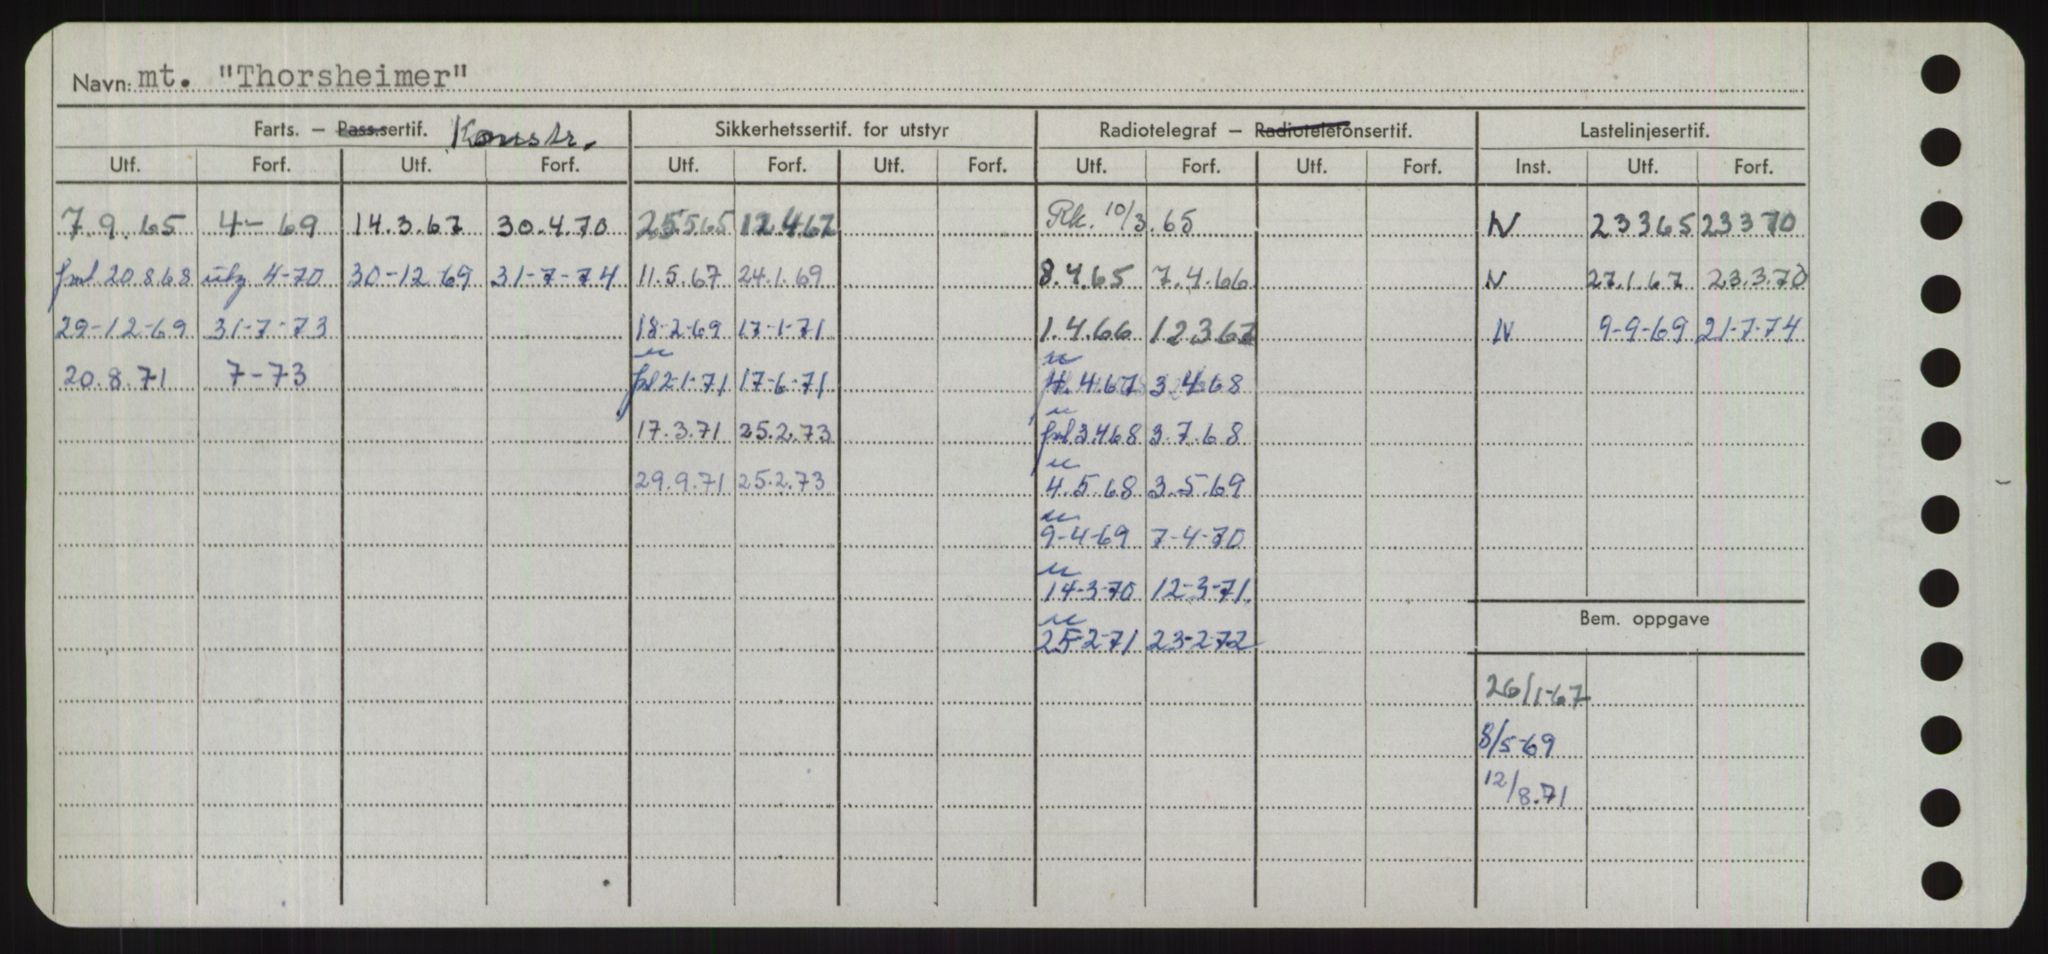 Navn: mt. "Thorsheimer"
Farts. – Pass.sertif. Konstr. Sikkerhetssertif. for utstyr Radiotelegraf – Radiotelefonsertif. Lastelinjesertif.
Utf. Forf. Utf. Forf. Utf. Forf. Utf. Forf. Utf. Forf. Utf. Forf. Inst. Utf. Forf.
7.9.65 4-69 14.3.67 30.4.70 25565 12.4.67 Rk. 10/3.65 N 23365 23370
20.8.68 4-70 30-12-69 31-7-74 11.5.67 24.1.69 8.4.65 7.4.66 N 27.1.67 23.3.70
29-12-69 31-7-73 18-2-69 17-1-71 1.4.66 12367 N 9-9-69 21-7-74
20.8.71 7-73 2-1-71 17-6-71 4.67 3.4.68
17.3.71 25.2.73 3.4.68 3.7.68
29.9.71 25.2.73 4.5.68 3.5.69
9-4-69 7-4-70
14-3-70 12-3-71
Bem. oppgave
25-2-71 23-2-72
26/1-67
8/5-69
12/8.71